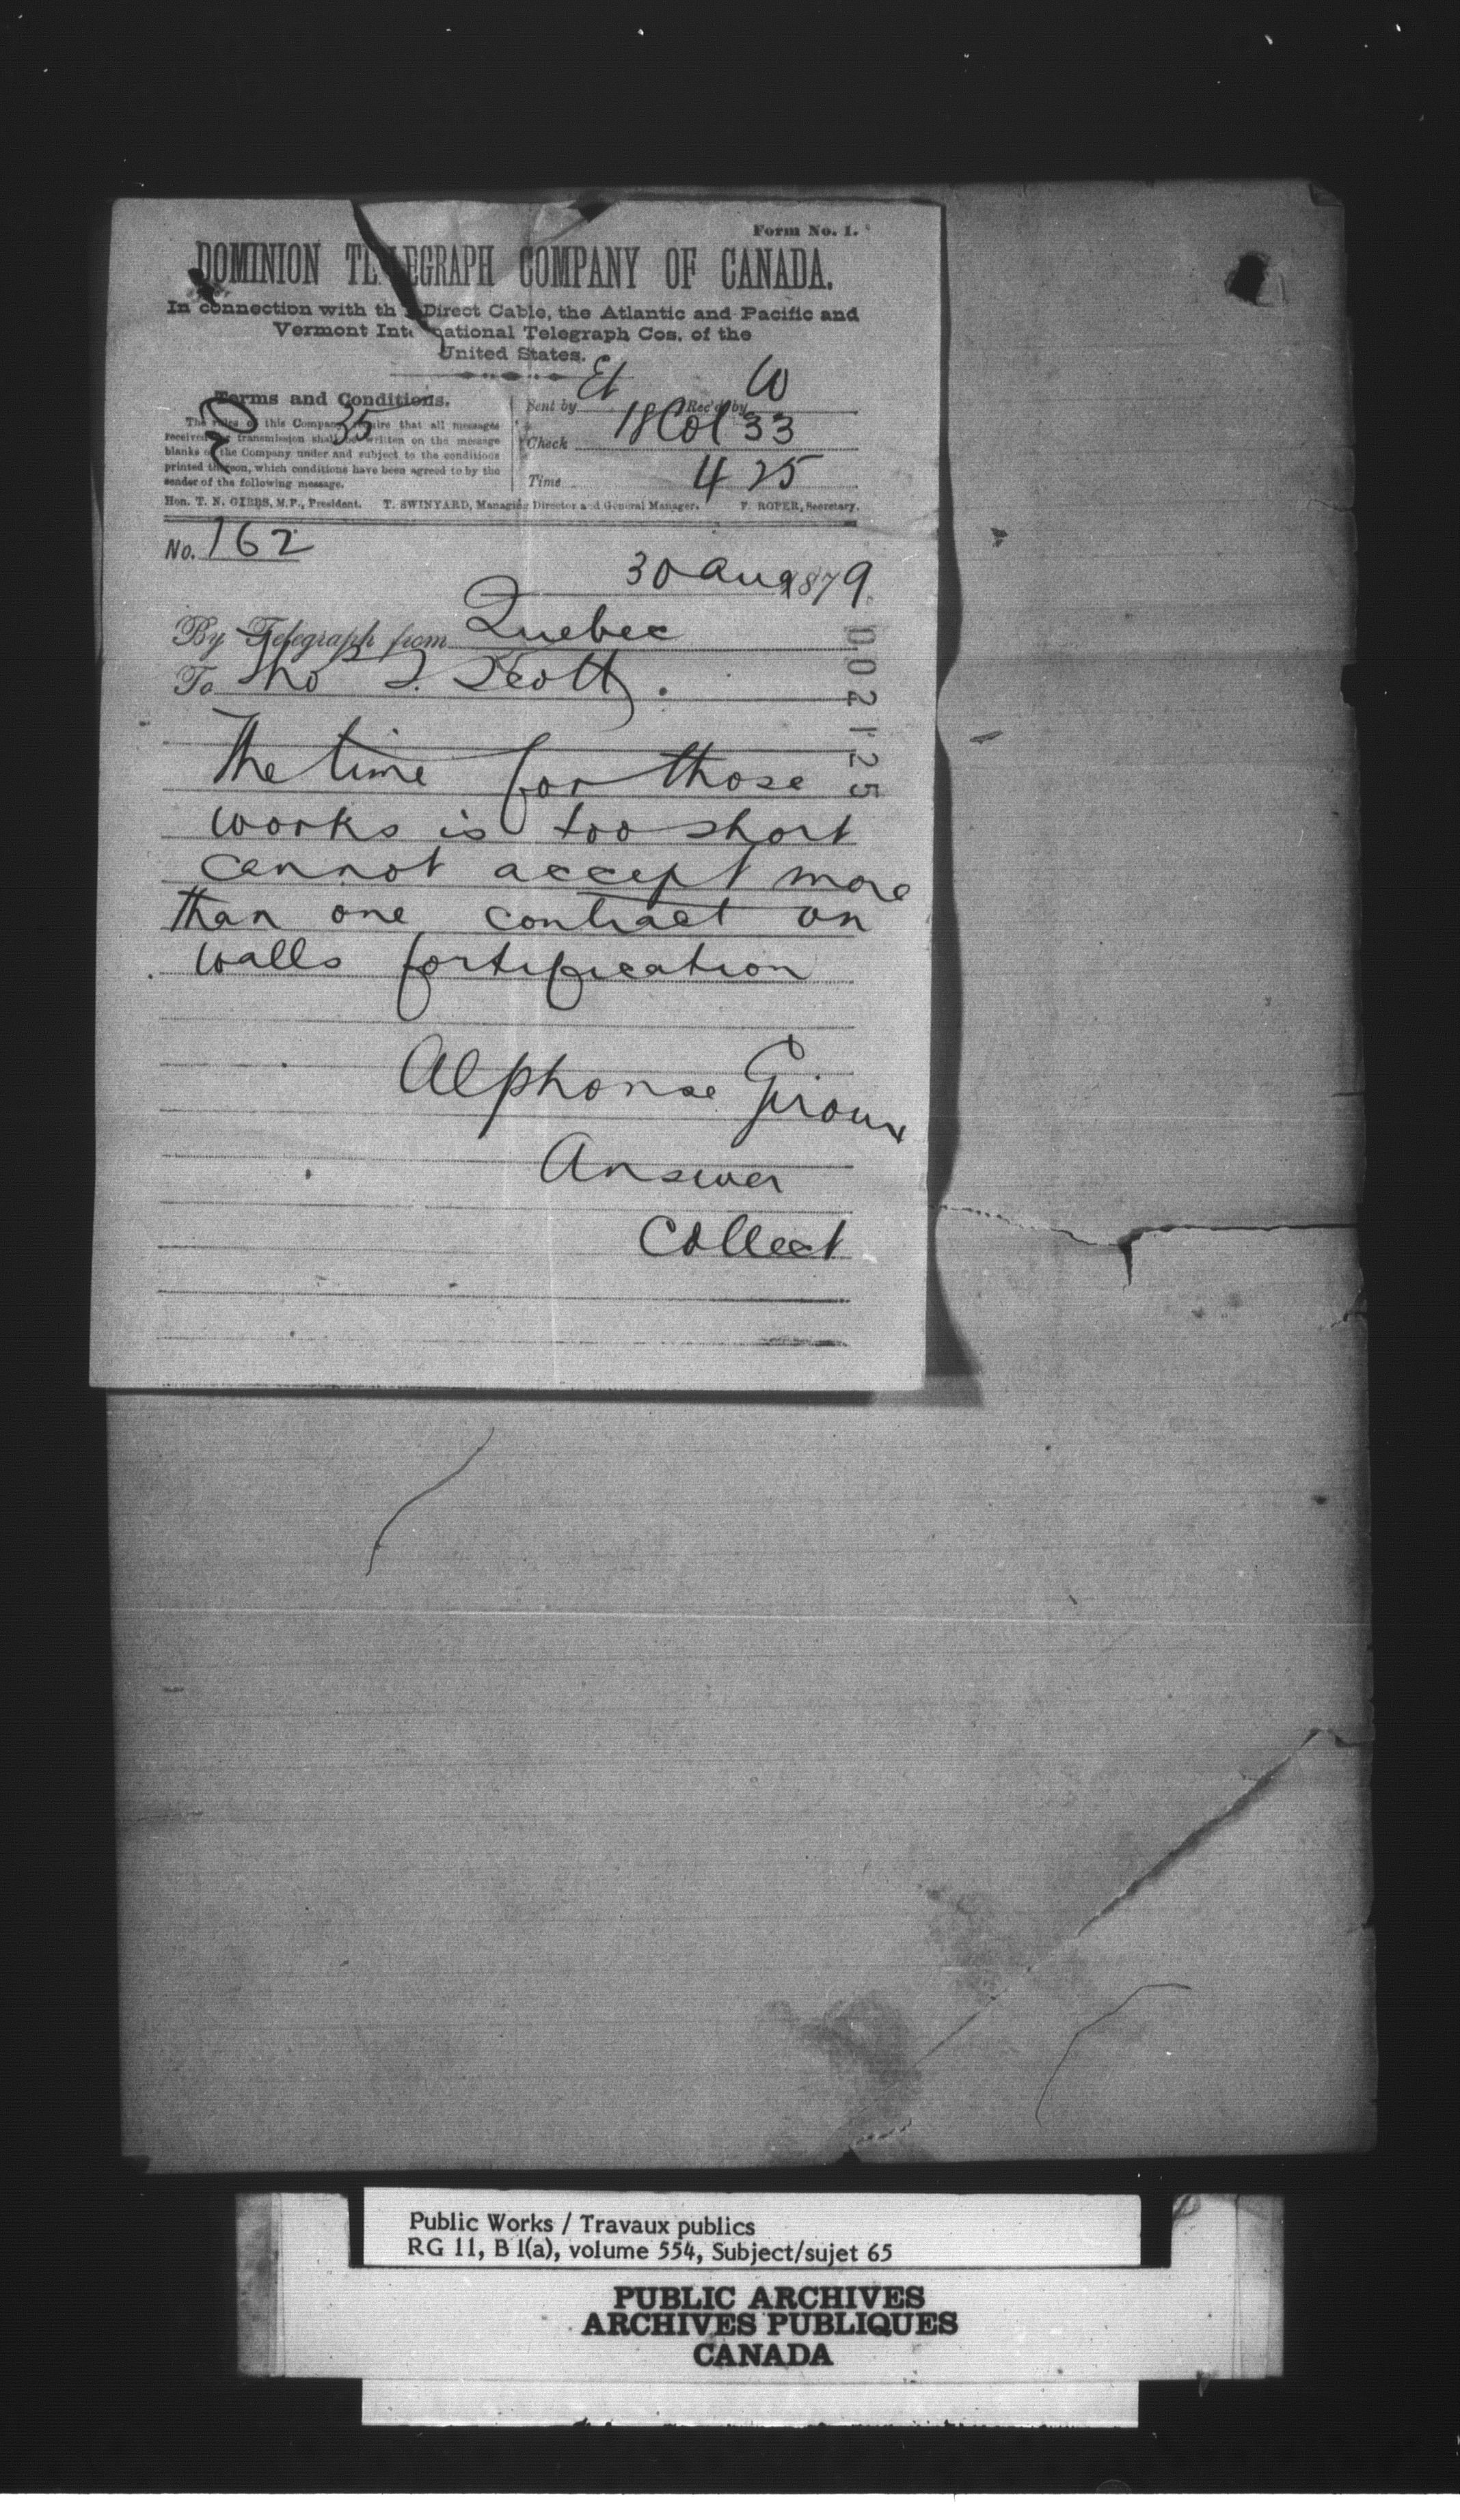 Form No. 1.
DOMINION TELEGRAPH COMPANY OF CANADA.
In connection with the Direct Cable, the Atlantic and Pacific and
Vermont International Telegraph Cos. of the
United States.
Terms and Conditions.
The rules of this Company require that all messages
received for transmission shall be written on the message
blanks of the Company under and subject to the conditions
printed thereon, which conditions have been agreed to by the
sender of the following message.
35
Sent by Et Rec'd by W
Check 18 Col 33
Time 4 25
Hon. T. N. GIBBS, M.P., President. T. SWINYARD, Managing Director and General Manager. F. ROPER, Secretary.
No. 162
30 Aug 1879
By Telegraph from Quebec
To Thos S. Scott.
The time for those
works is too short
cannot accept more
than one contract on
walls fortification
Alphonse Giroux
Answer
Collect
002125
Public Works / Travaux publics
RG 11, B 1(a), volume 554, Subject/sujet 65
PUBLIC ARCHIVES
ARCHIVES PUBLIQUES
CANADA